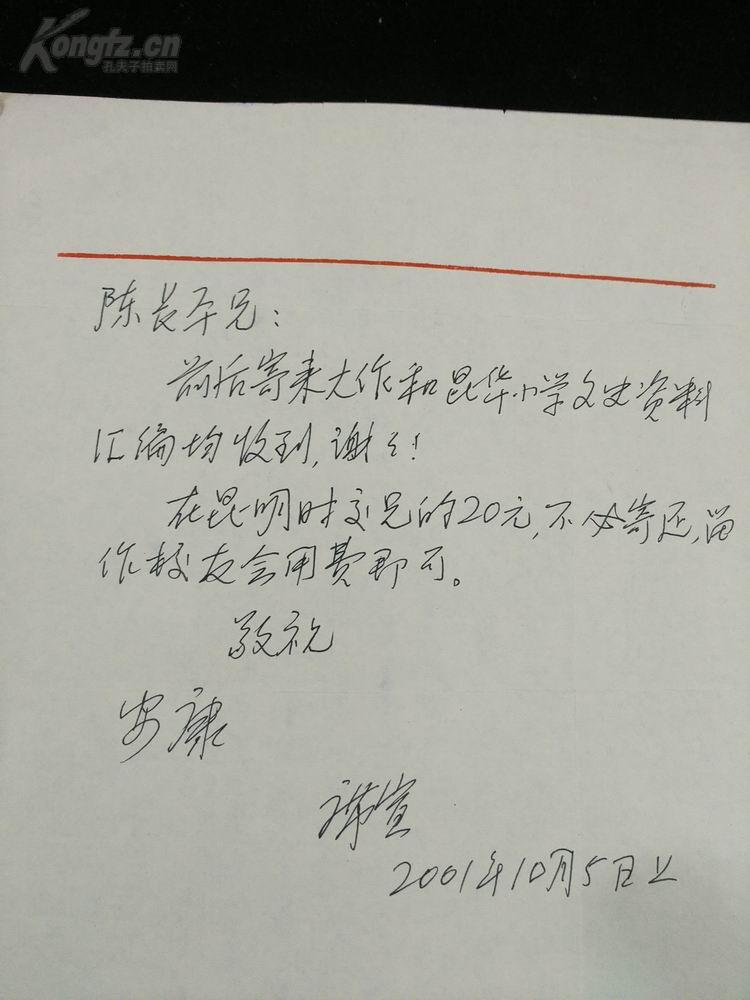 Kongfz.cn
孔夫子拍卖网
陈长平兄：
前后寄来大作和昆华小学文史资料
汇编均收到，谢々！
在昆明时交兄的20元，不必寄还，留
作校友会用费即可。
敬祝
安康
宣
2001年10月5日上